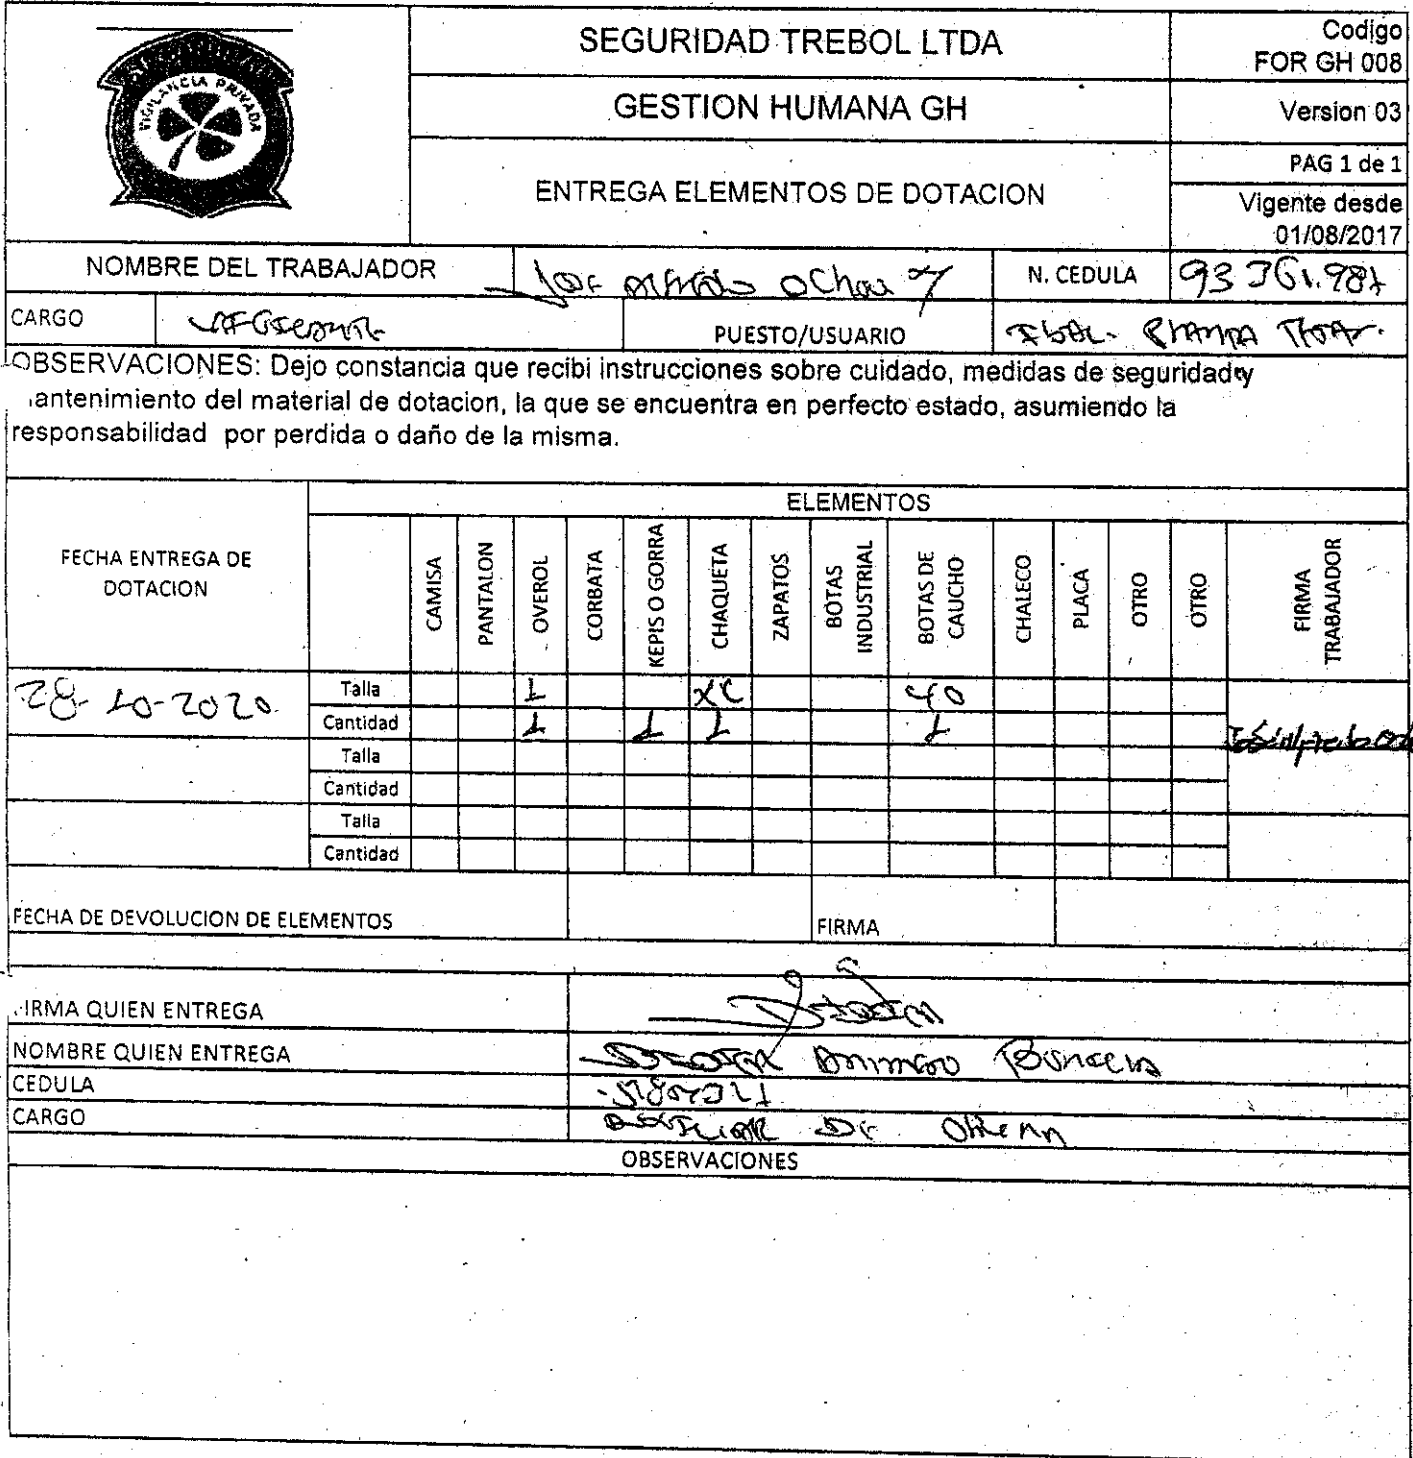 SEGURIDAD TREBOL LTDA
Codigo
FOR GH 008
VIGILANCIA PRIVADA
GESTION HUMANA GH
Version 03
ENTREGA ELEMENTOS DE DOTACION
PAG 1 de 1
Vigente desde
01/08/2017
NOMBRE DEL TRABAJADOR
Jose Alfredo Ochoa
N. CEDULA
93 361.987
CARGO
PUESTO/USUARIO
Ibal. Planta
OBSERVACIONES: Dejo constancia que recibi instrucciones sobre cuidado, medidas de seguridad y
antenimiento del material de dotacion, la que se encuentra en perfecto estado, asumiendo la
responsabilidad por perdida o daño de la misma.
ELEMENTOS
FECHA ENTREGA DE
DOTACION
CAMISA
PANTALON
OVEROL
CORBATA
KEPIS O GORRA
CHAQUETA
ZAPATOS
BOTAS
INDUSTRIAL
BOTAS DE
CAUCHO
CHALECO
PLACA
OTRO
OTRO
FIRMA
TRABAJADOR
28-10-2020
Talla L XL 40
Cantidad 1 1 1 1
Talla
Cantidad
Talla
Cantidad
FECHA DE DEVOLUCION DE ELEMENTOS
FIRMA
FIRMA QUIEN ENTREGA
NOMBRE QUIEN ENTREGA
CEDULA
CARGO
Auxiliar De
OBSERVACIONES